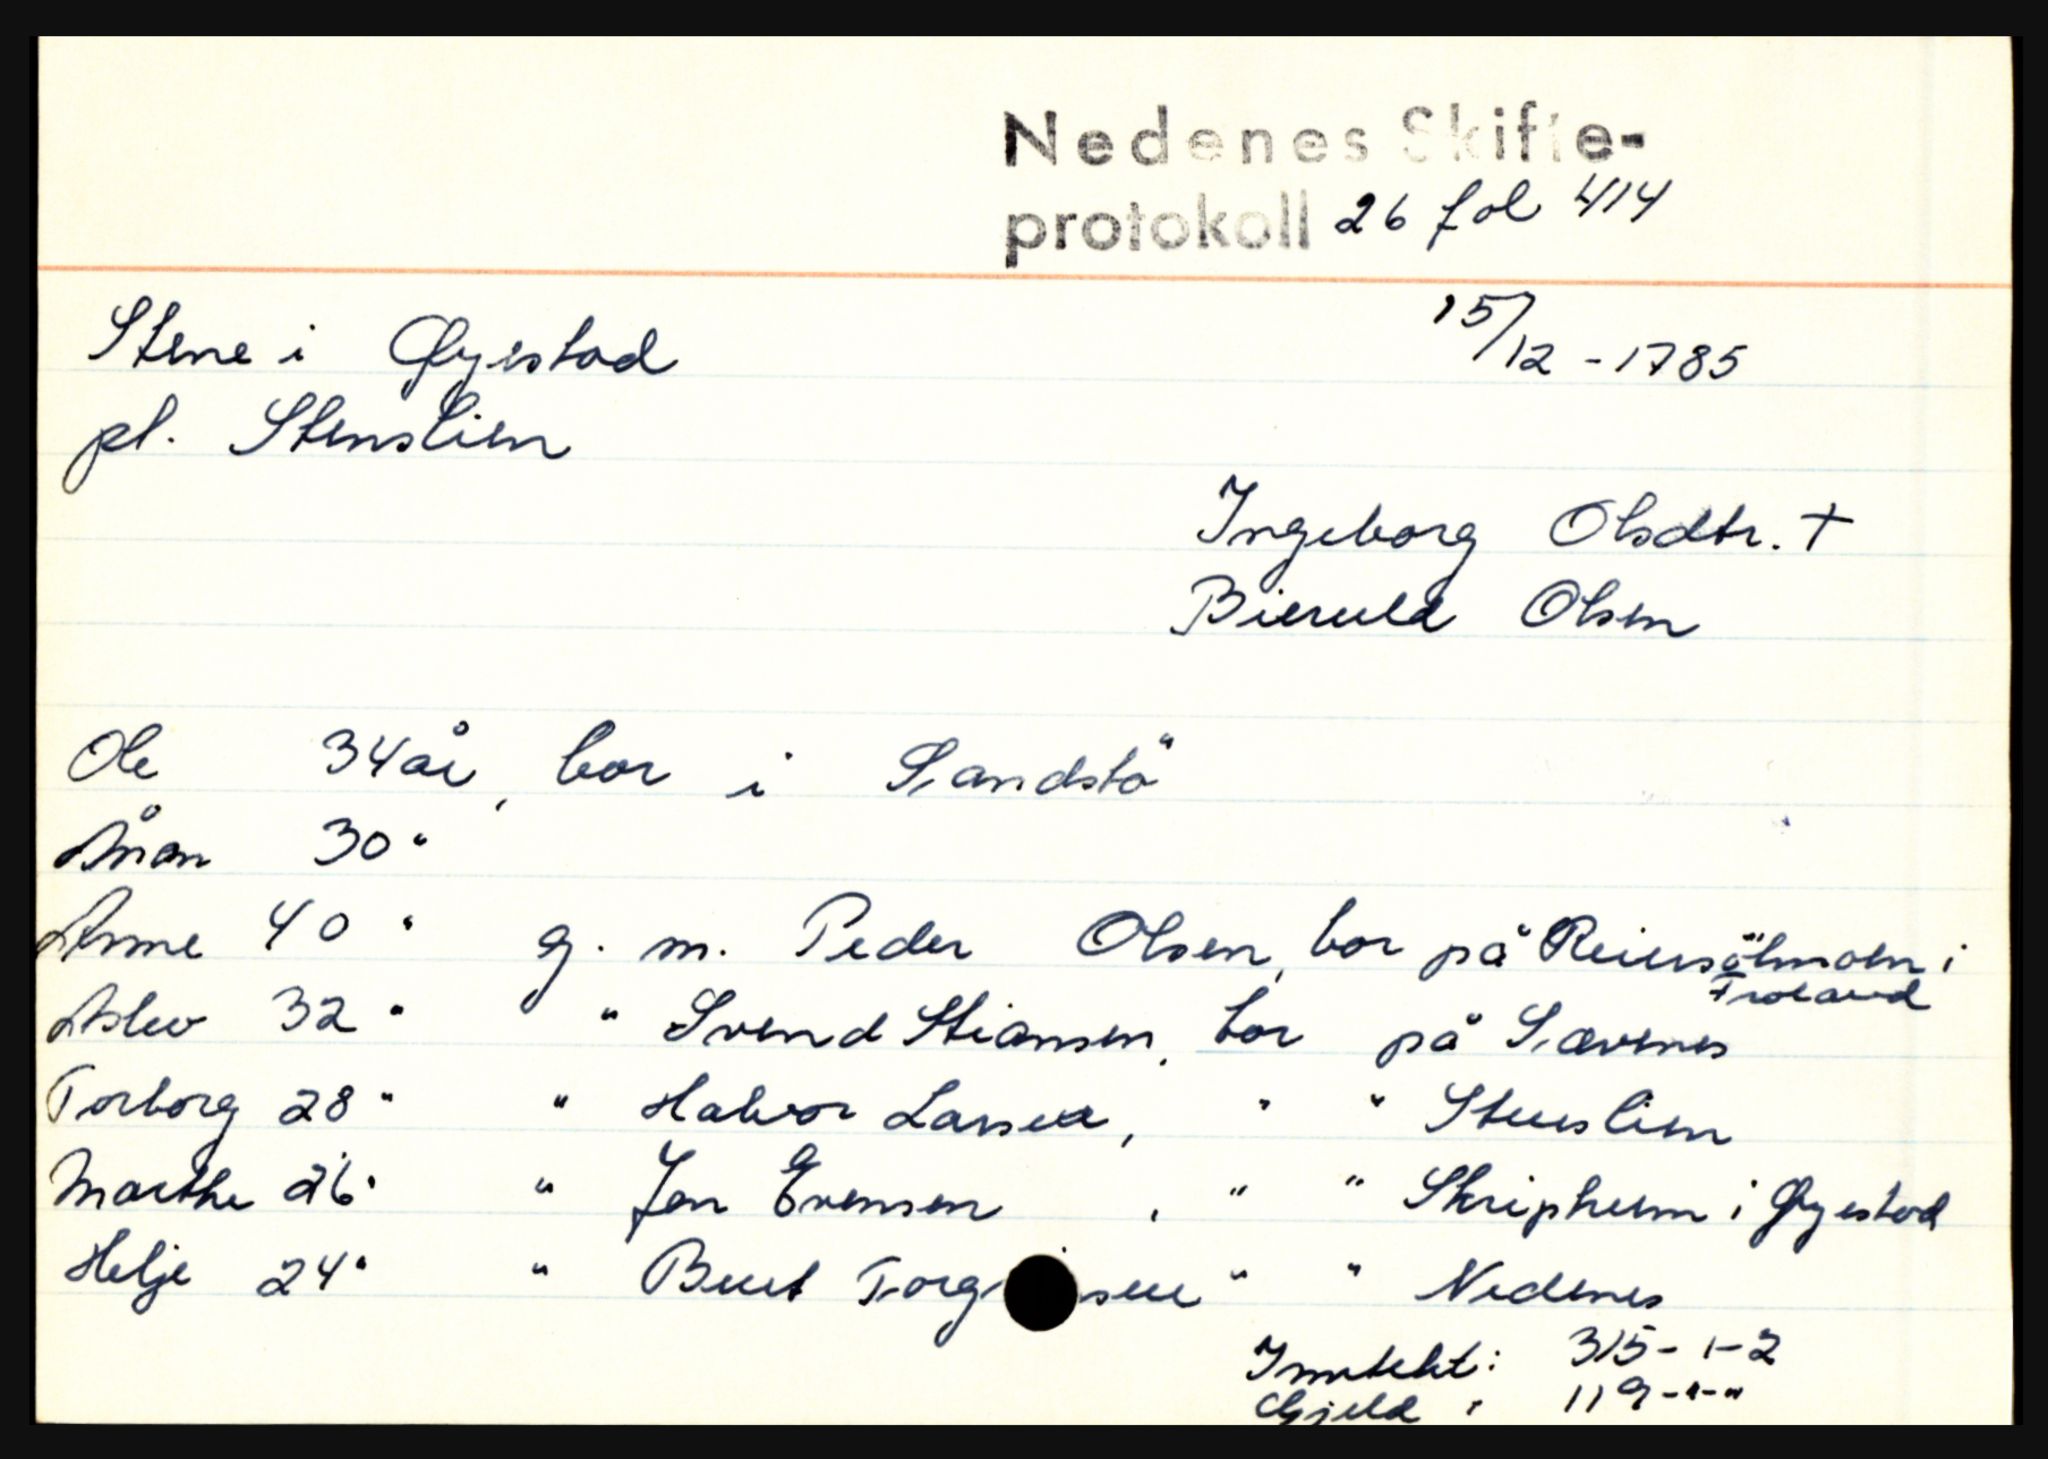 Nedenes Skifte-
protokoll 26 fol 414
15/12 - 1785
Stene i Øyestad
pl. Stenslien
Ingeborg Olsdtr. +
Bieruld Olsen
Ole 34 år, bor i Sandstö
Ånon 30 "
Anne 40 " g. m. Peder Olsen, bor på Reiersölmoen i Froland
Aslew 32 " " Svend Stiansen, bor på Sævenes
Torborg 28 " " Halvor Larsen, " " Stenslien
Marthe 26 " " Jon Evensen, " " Skripheim i Øyestad
Helje 24 " " Bent " " Nedenes
Inntekt: 315 - 1 - 2
Gjeld " 119 - " - "